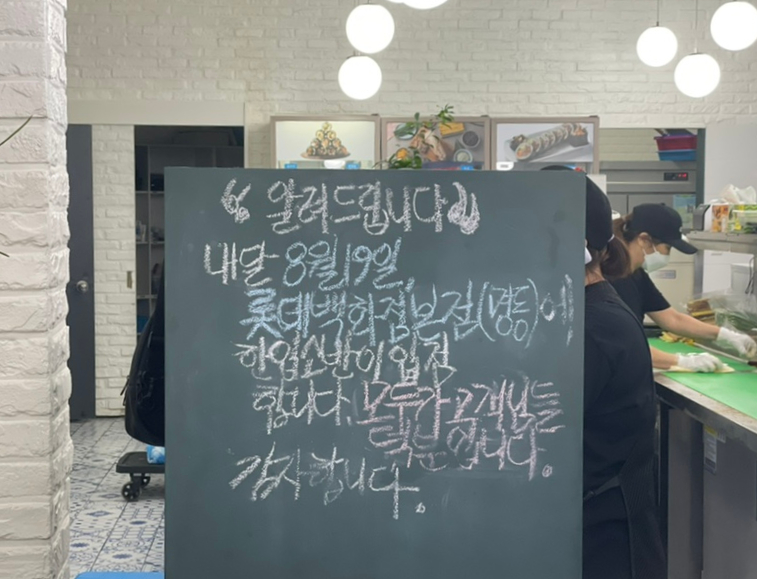 “ 알려드립니다 ”
내달 8월19일
롯데백화점본점(명동)에
한입소반이입점
합니다. 모두가 고객님들
덕분입니다.
감사합니다.